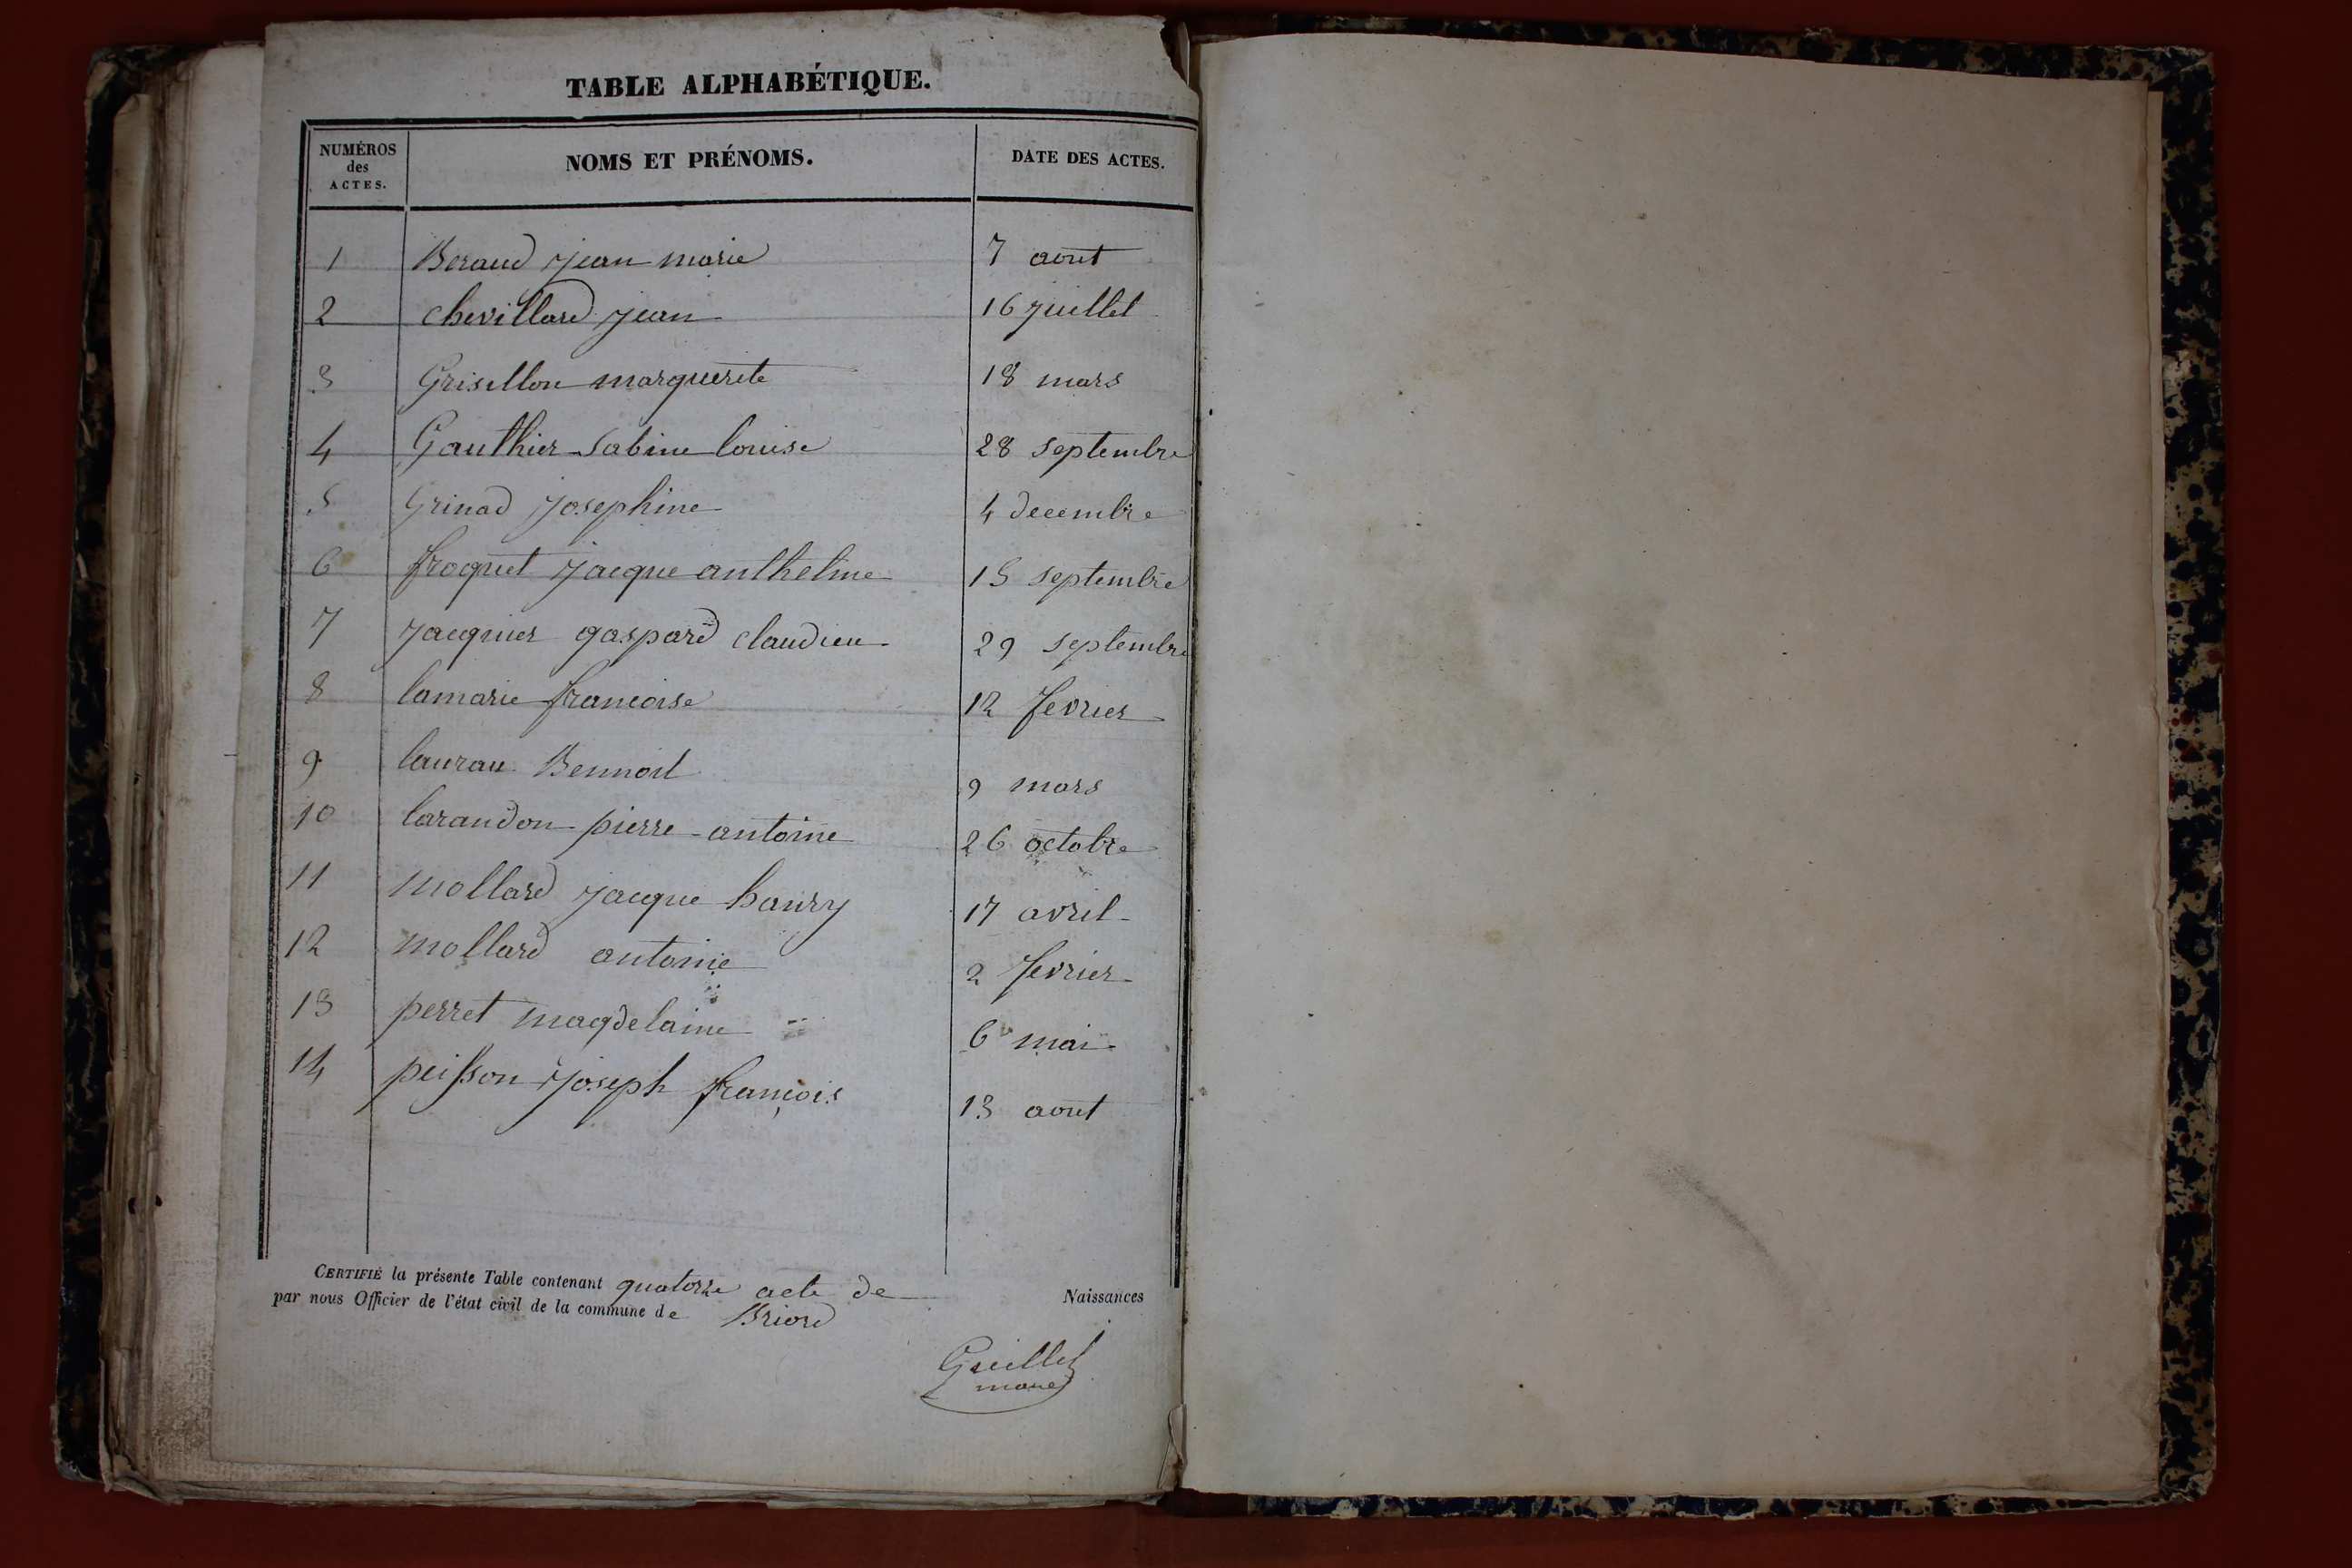 TABLE ALPHABÉTIQUE.
NUMÉROS des ACTES. NOMS ET PRÉNOMS. DATE DES ACTES.
1 Beraud jean marie 7 aout
2 chevillard jean 16 juillet
3 Grisillon marguerite 18 mars
4 Gauthier Sabine louise 28 septembre
5 Grinad josephine 4 decembre
6 froquet jacque anthelme 15 septembre
7 jacquier gaspard claudieu 29 septembre
8 lamarie francoise 12 fevrier
9 laurau Bennoit 9 mars
10 larandon pierre antoine 26 octobre
11 mollard jacque haury 17 avril
12 mollard antoine 2 fevrier
13 perret magdelaine 6 mai
14 peisson joseph françois 13 aout
CERTIFIÉ la présente Table contenant quatorze acte de Naissances
par nous Officier de l'état civil de la commune de Briord
Guillet
maire